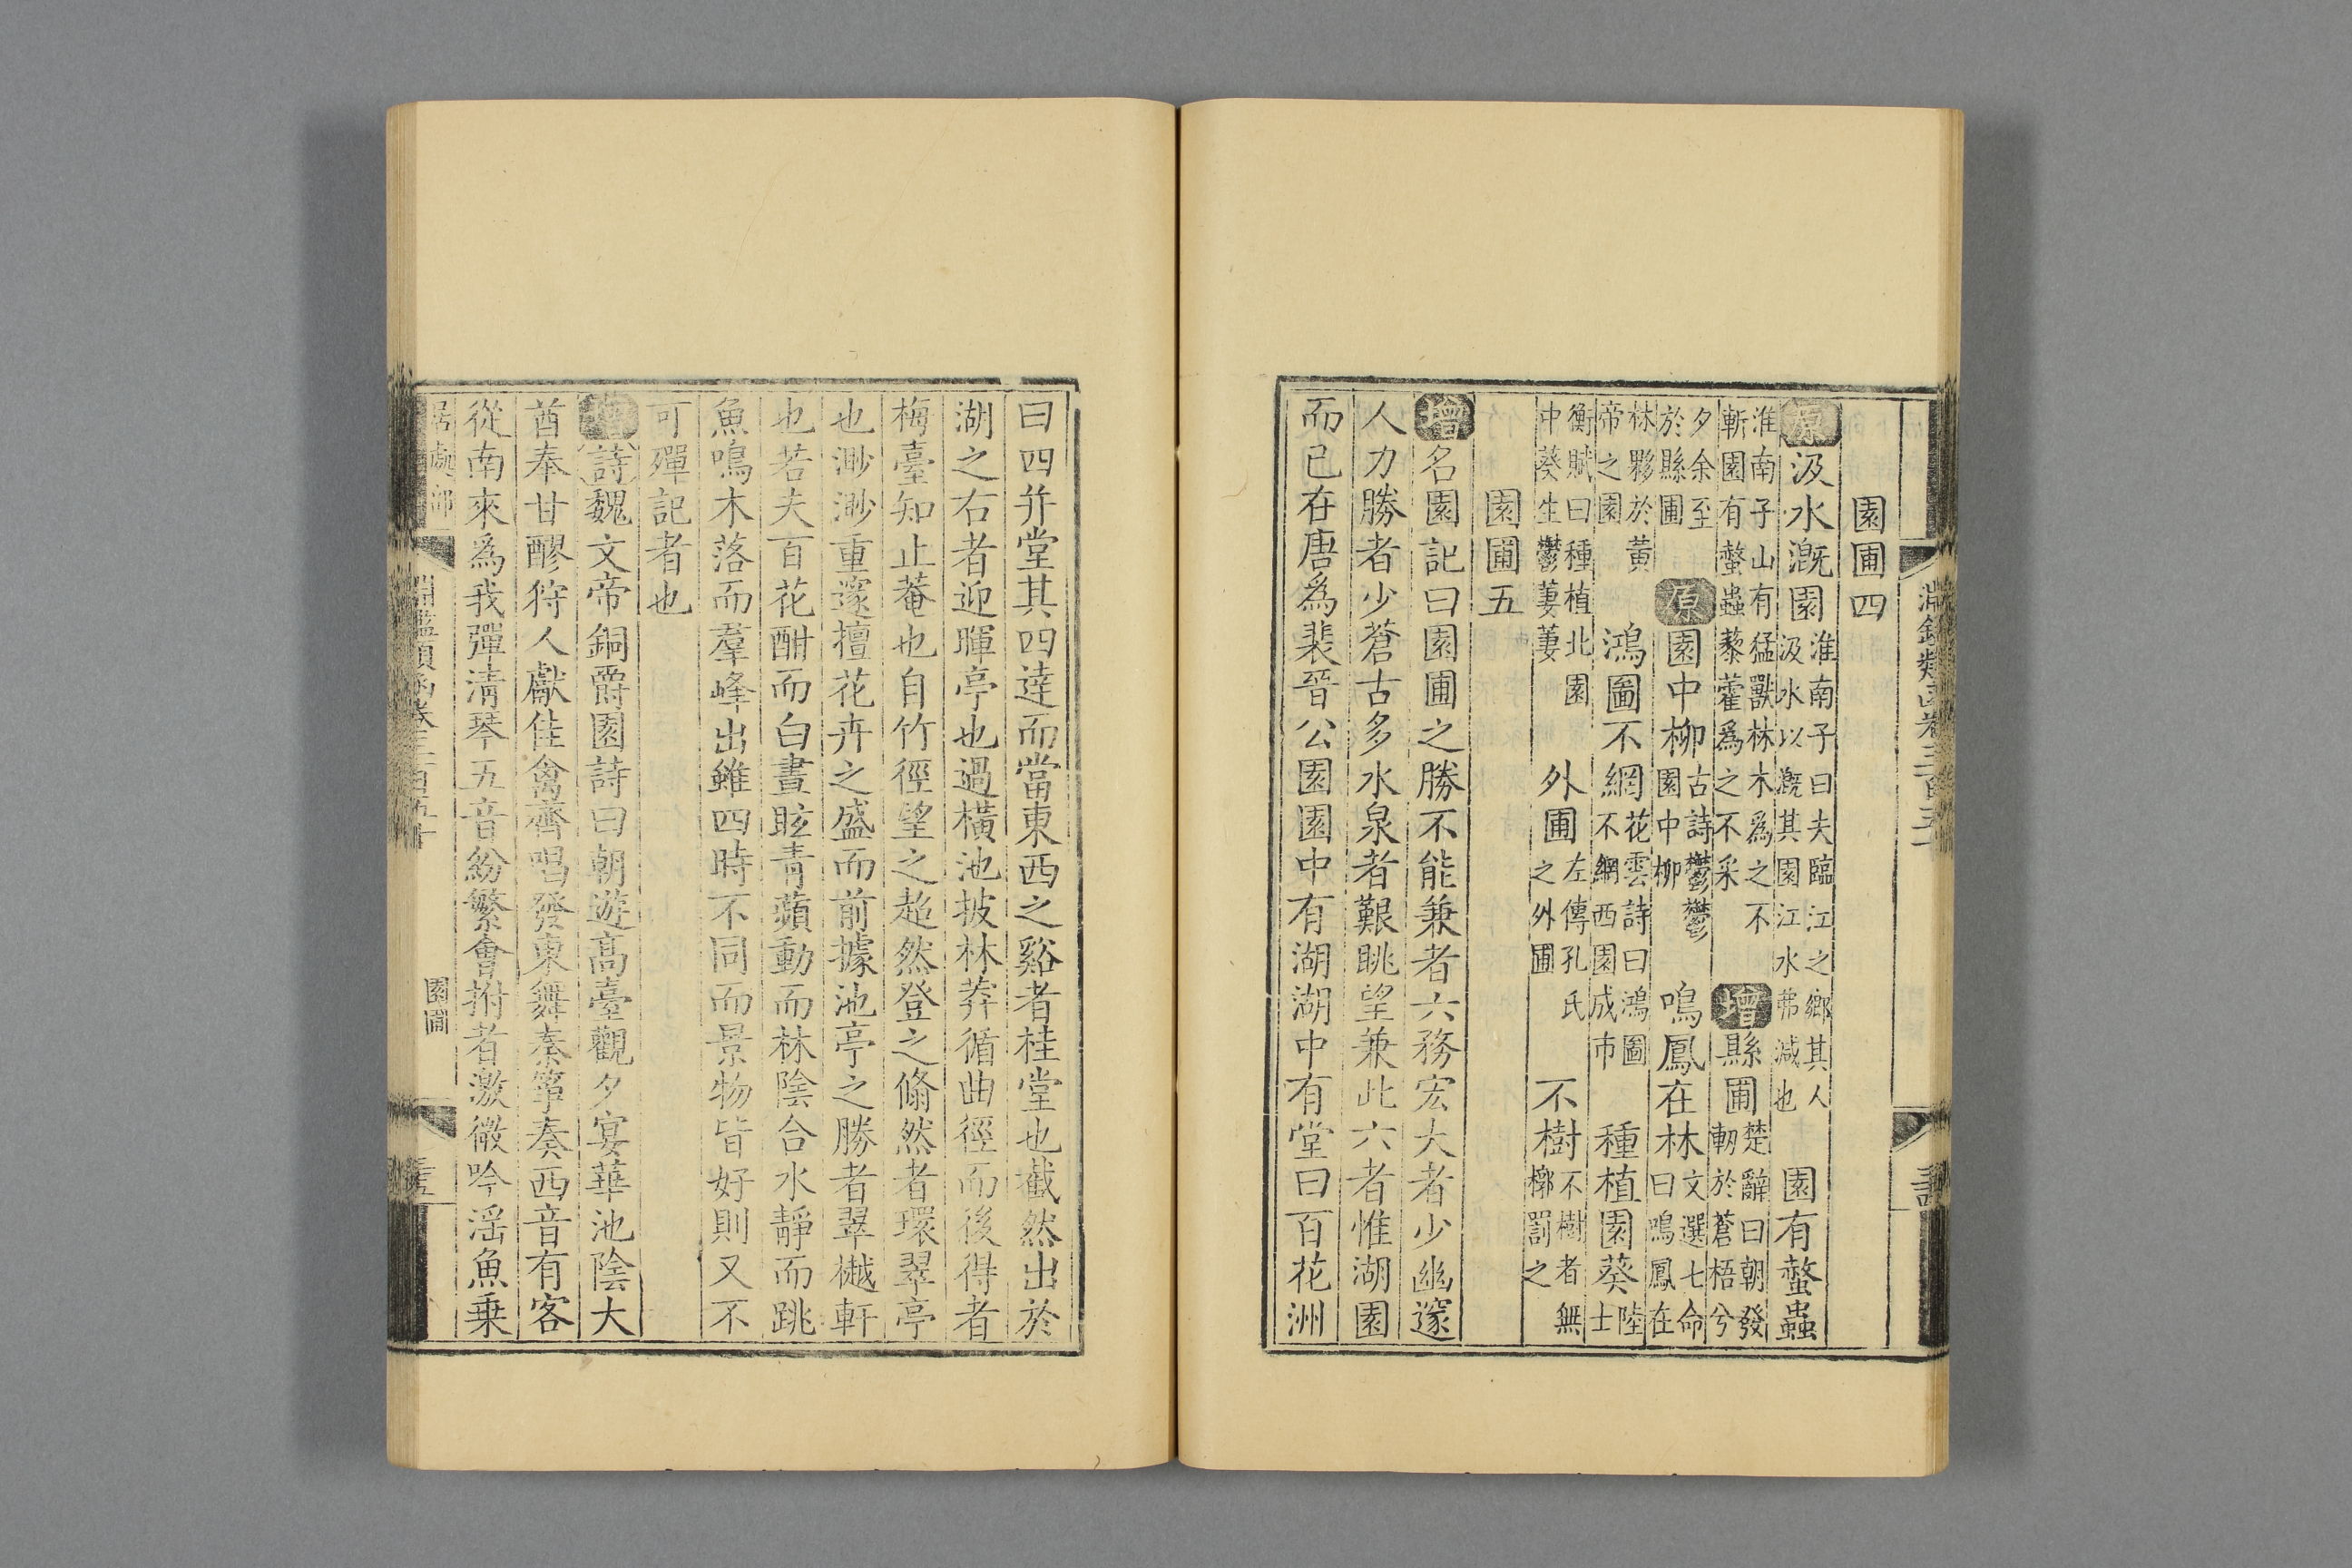 淵鑑類函卷三百五十
園圃四
原汲水漑園淮南子曰夫臨江之鄉其人汲水以漑其園江水弗減也 園有螫蟲
淮南子山有猛獸林木爲之不斬園有螫蟲藜藿爲之不采 增縣圃楚辭曰朝發軔於蒼梧兮
夕余至於縣圃 原園中柳古詩鬱鬱園中柳 鳴鳳在林文選七命曰鳴鳳在
林夥於黃帝之園 鴻圖不網花雲詩曰鴻圖不網西園成市 種植園葵陸士
衡賦曰種植北園中葵生鬱萋萋 外圃左傳孔氏之外圃 不樹不樹者無槨罰之
園圃五
增名園記曰園圃之勝不能兼者六務宏大者少幽邃
人力勝者少蒼古多水泉者艱眺望兼此六者惟湖園
而已在唐爲裴晉公園園中有湖湖中有堂曰百花洲
曰四并堂其四達而當東西之谿者桂堂也截然出於
湖之右者迎暉亭也過橫池披林莽循曲徑而後得者
梅臺知止菴也自竹徑望之超然登之翛然者環翠亭
也渺渺重邃擅花卉之盛而前據池亭之勝者翠樾軒
也若夫百花酣而白晝眩青蘋動而林陰合水靜而跳
魚鳴木落而羣峰出雖四時不同而景物皆好則又不
可殫記者也
增詩魏文帝銅爵園詩曰朝遊高臺觀夕宴華池陰大
酋奉甘醪狩人獻佳禽齊唱發東舞秦箏奏西音有客
從南來爲我彈清琴五音紛繁會拊者激微吟淫魚乗
居處部 淵鑑類函卷三百五十 園圃